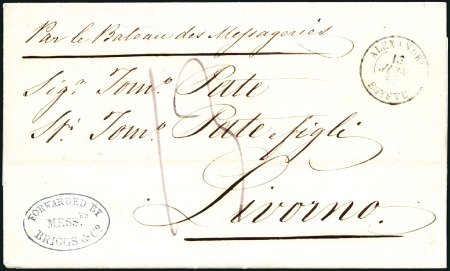 Par le Bateau des Messageries
Sigr. Tomo. Pate
St. Tomo. Pate e figli
Livorno.
13
ALEXANDRIE
13
JUIN
EGYPTE
FORWARDED BY
MESS.RS
BRIGGS & Co